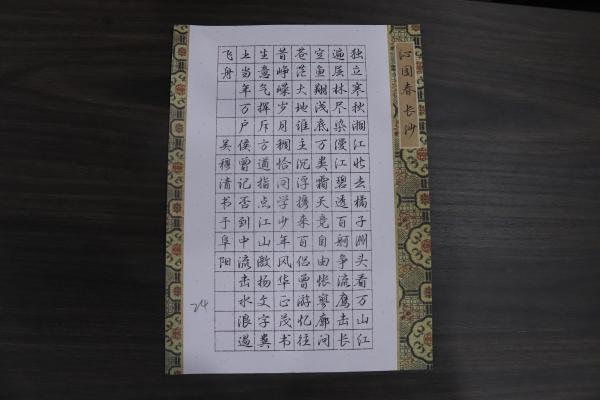 沁园春长沙
独立寒秋湘江北去橘子洲头看万山红
遍层林尽染漫江碧透百舸争流鹰击长
空鱼翔浅底万类霜天竞自由怅寥廓问
苍茫大地谁主沉浮携来百侣曾游忆往
昔峥嵘岁月稠恰同学少年风华正茂书
生意气挥斥方遒指点江山激扬文字粪
土当年万户侯曾记否到中流击水浪遏
飞舟 吴穆清书于阜阳
24